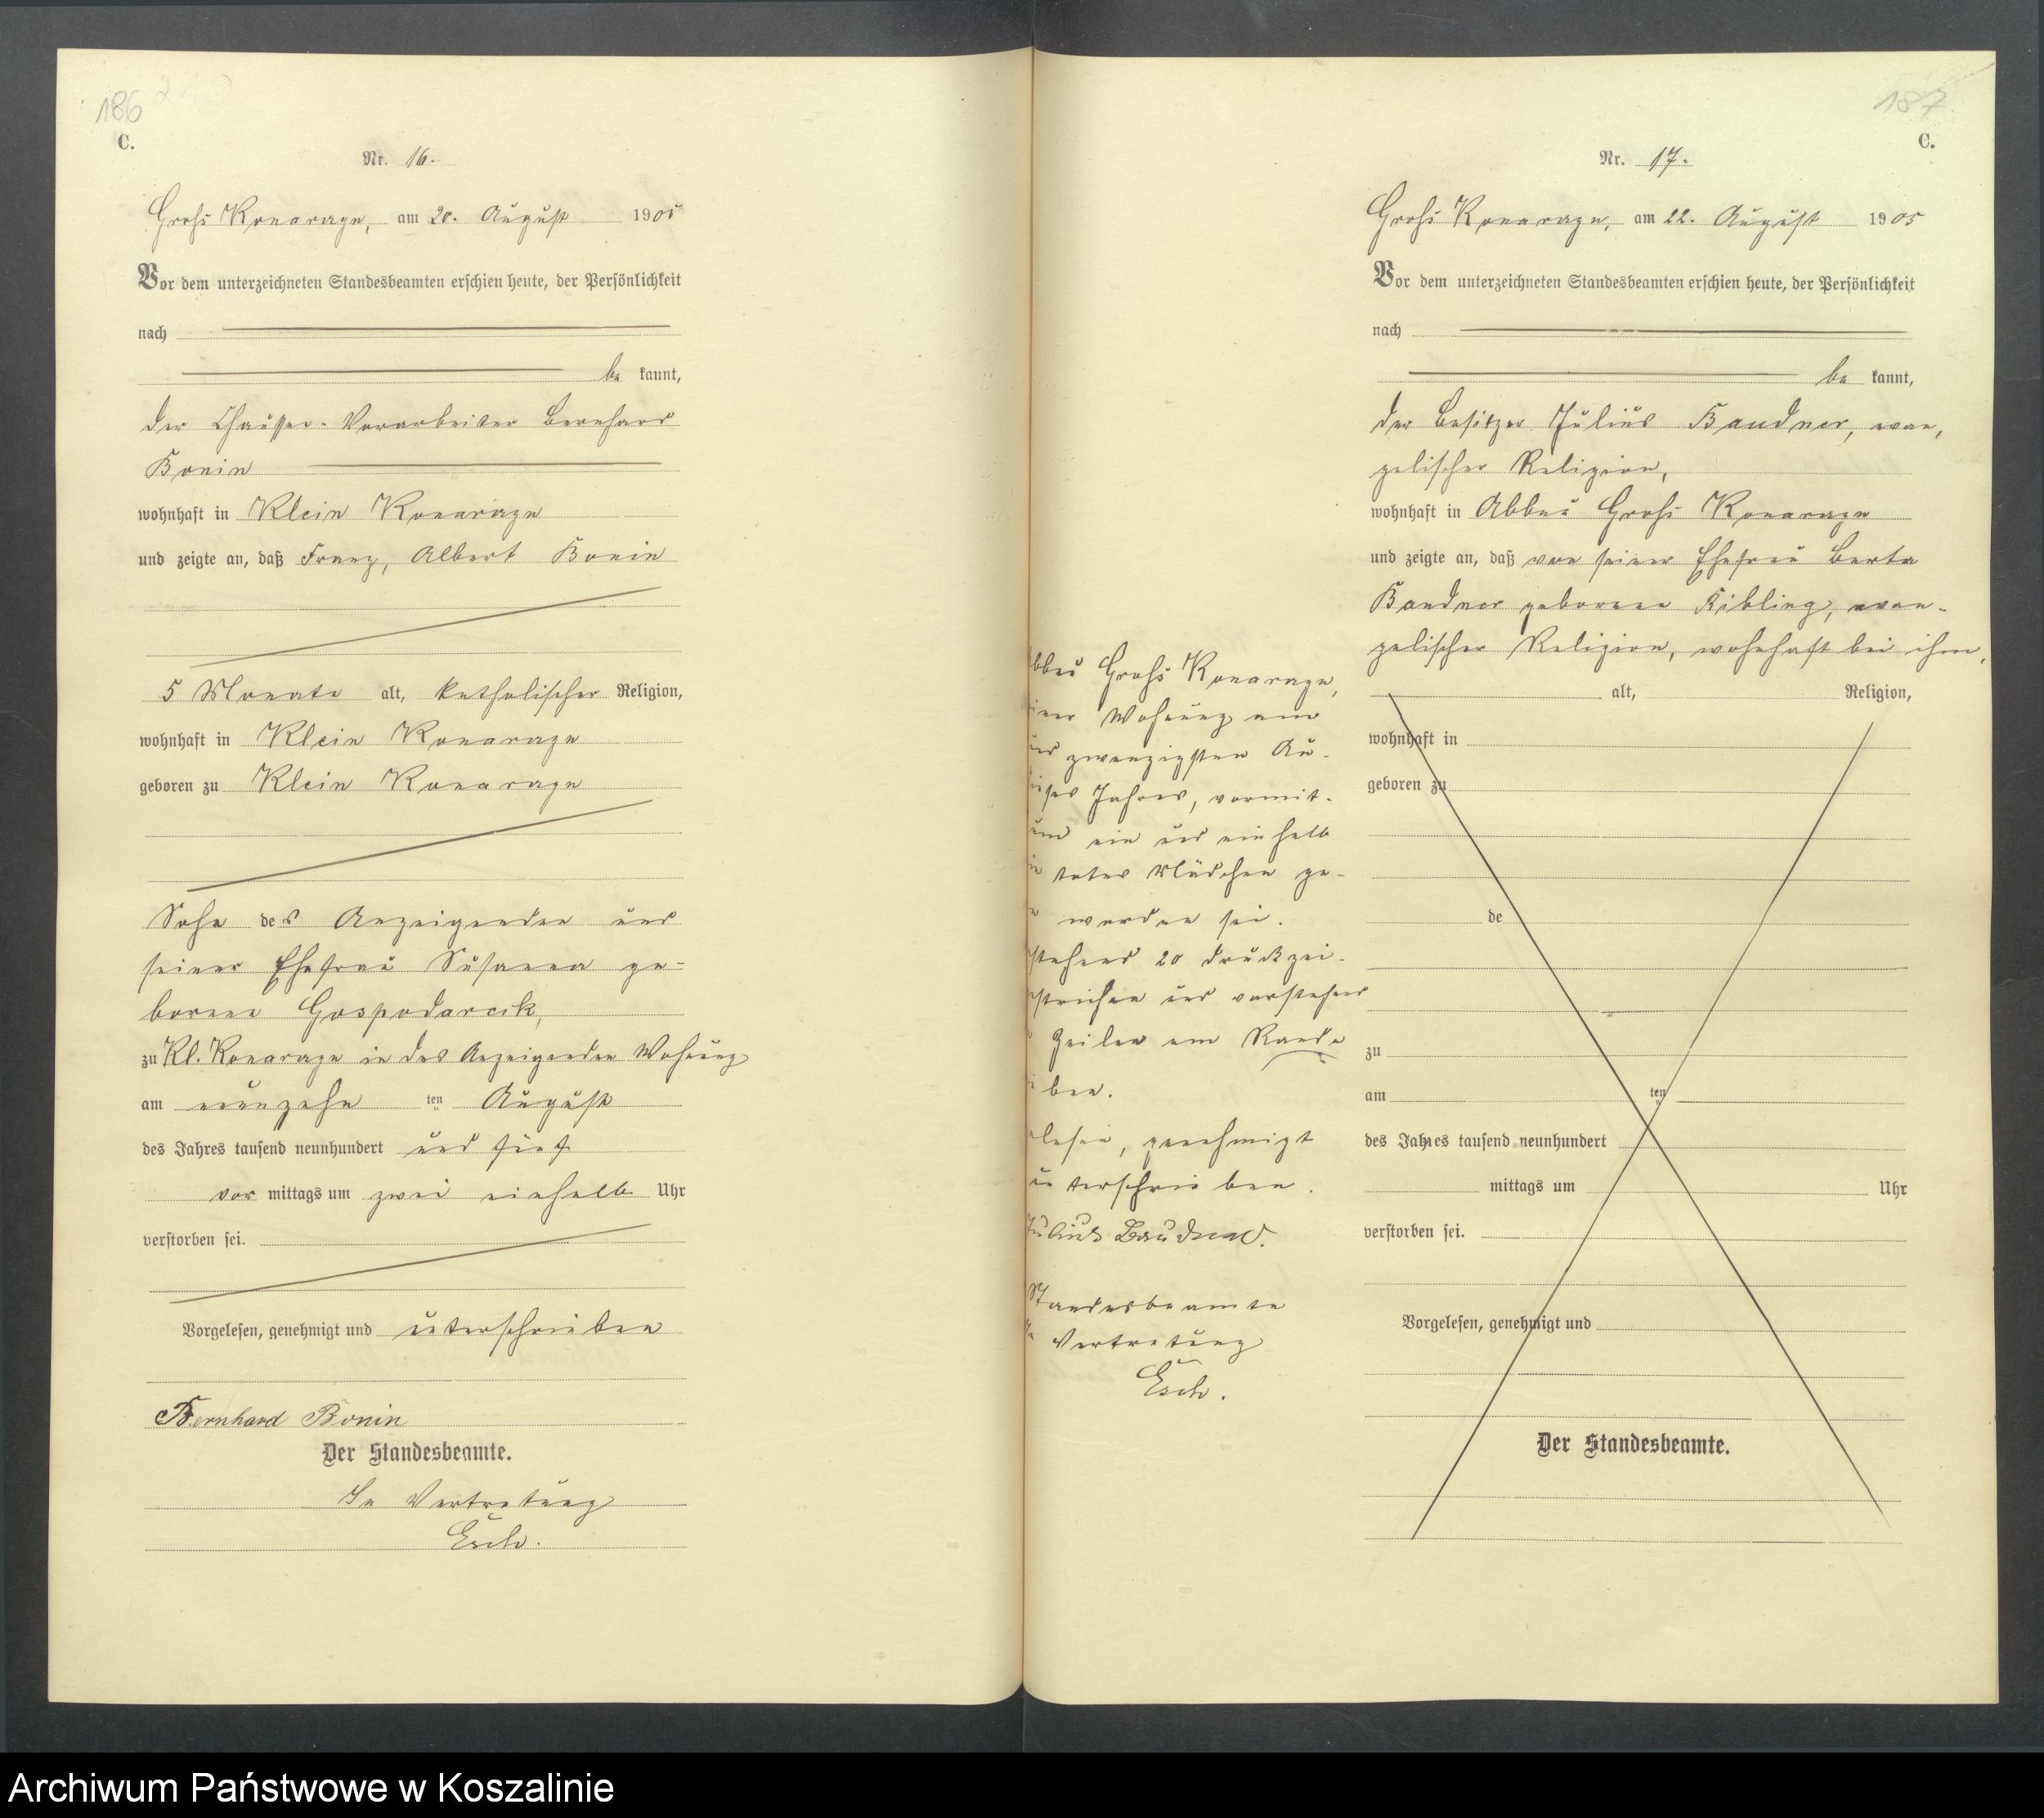 186
C.
Nr. 16.
Groß Konarzyn, am 20. August 1905
Vor dem unterzeichneten Standesbeamten erschien heute, der Persönlichkeit
nach
be kannt,
der Chaussee-Vorarbeiter Bernhard
Bonin
wohnhaft in Klein Konarzyn
und zeigte an, daß Franz, Albert Bonin
5 Monate alt, katholischer Religion,
wohnhaft in Klein Konarzyn
geboren zu Klein Konarzyn
Sohn des Anzeigenden und
seiner Ehefrau Susanna ge-
borene Gospodarcik,
zu Kl. Konarzyn in des Anzeigenden Wohnung
am neunzehn ten August
des Jahres tausend neunhundert und fünf
vor mittags um zwei einhalb Uhr
verstorben sei.
Vorgelesen, genehmigt und unterschrieben
Bernhard Bonin
Der Standesbeamte.
In Vertretung
Esch.
187
C.
Nr. 17.
Groß Konarzyn, am 22. August 1905
Vor dem unterzeichneten Standesbeamten erschien heute, der Persönlichkeit
nach
be kannt,
der Besitzer Julius Baudner, evan-
gelischer Religion,
wohnhaft in Abbau Groß Konarzyn
und zeigte an, daß von seiner Ehefrau Berta
Baudner geborene Kibling, evan-
gelischer Religion, wohnhaft bei ihm,
alt, Religion,
wohnhaft in
geboren zu
de
zu
am ten
des Jahres tausend neunhundert
mittags um Uhr
verstorben sei.
Vorgelesen, genehmigt und
Der Standesbeamte.
bbau Groß Konarzyn,
iner Wohnung am
und zwanzigsten Au-
ieses Jahres, vormit-
um ein und einhalb
in totes Mädchen ge-
n worden sei.
stehend 20 Druckzei-
estrichen und vorstehend
Zeilen am Rande
ieben.
elesen, genehmigt
unterschrieben.
Julius Baudner.
Standesbeamte
In Vertretung
Esch.
Archiwum Państwowe w Koszalinie